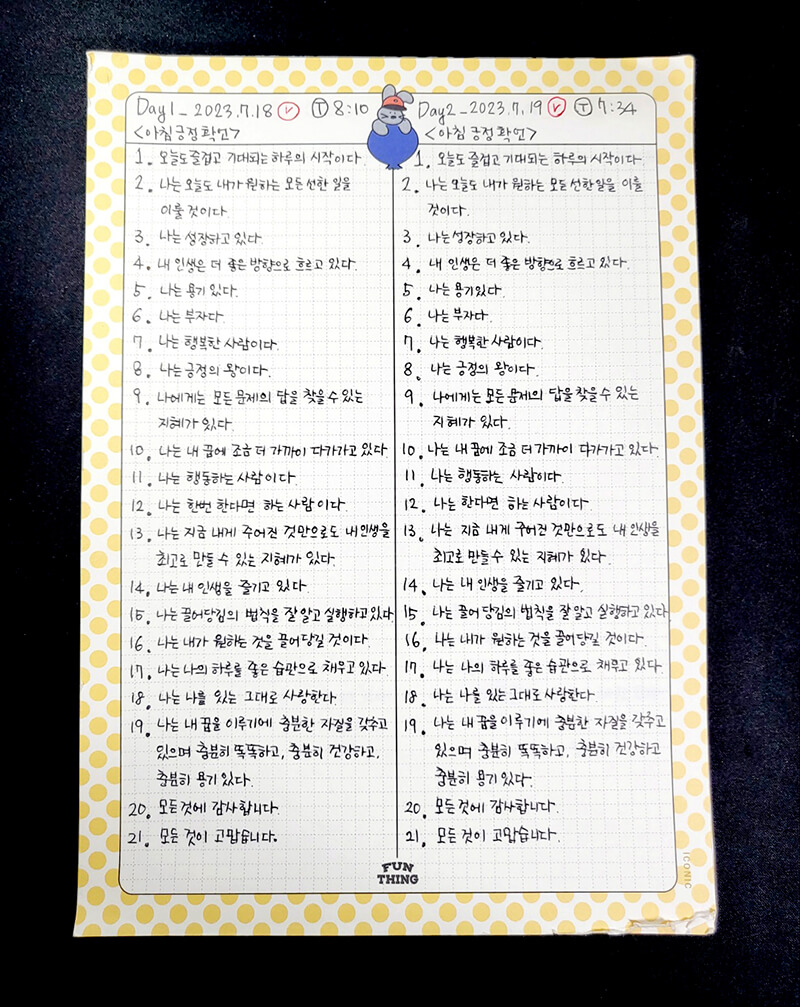 Day1_2023.7.18 Ⓥ Ⓣ 8:10
<아침 긍정 확언>
1. 오늘도 즐겁고 기대되는 하루의 시작이다.
2. 나는 오늘도 내가 원하는 모든 선한 일을
이룰 것이다.
3. 나는 성장하고 있다.
4. 내 인생은 더 좋은 방향으로 흐르고 있다.
5. 나는 용기 있다.
6. 나는 부자다.
7. 나는 행복한 사람이다.
8. 나는 긍정의 왕이다.
9. 나에게는 모든 문제의 답을 찾을 수 있는
지혜가 있다.
10. 나는 내 꿈에 조금 더 가까이 다가가고 있다.
11. 나는 행동하는 사람이다.
12. 나는 한번 한다면 하는 사람이다.
13. 나는 지금 내게 주어진 것만으로도 내 인생을
최고로 만들 수 있는 지혜가 있다.
14. 나는 내 인생을 즐기고 있다.
15. 나는 끌어당김의 법칙을 잘 알고 실행하고 있다.
16. 나는 내가 원하는 것을 끌어당길 것이다.
17. 나는 나의 하루를 좋은 습관으로 채우고 있다.
18. 나는 나를 있는 그대로 사랑한다.
19. 나는 내 꿈을 이루기에 충분한 자질을 갖추고
있으며 충분히 똑똑하고, 충분히 건강하고,
충분히 용기 있다.
20. 모든 것에 감사합니다.
21. 모든 것이 고맙습니다.
Day2_2023.7.19 Ⓥ Ⓣ 7:34
<아침 긍정 확언>
1. 오늘도 즐겁고 기대되는 하루의 시작이다.
2. 나는 오늘도 내가 원하는 모든 선한 일을 이룰
것이다.
3. 나는 성장하고 있다.
4. 내 인생은 더 좋은 방향으로 흐르고 있다.
5. 나는 용기있다.
6. 나는 부자다.
7. 나는 행복한 사람이다.
8. 나는 긍정의 왕이다.
9. 나에게는 모든 문제의 답을 찾을 수 있는
지혜가 있다.
10. 나는 내 꿈에 조금 더 가까이 다가가고 있다.
11. 나는 행동하는 사람이다.
12. 나는 한다면 하는 사람이다.
13. 나는 지금 내게 주어진 것만으로도 내 인생을
최고로 만들 수 있는 지혜가 있다.
14. 나는 내 인생을 즐기고 있다.
15. 나는 끌어당김의 법칙을 잘 알고 실행하고 있다.
16. 나는 내가 원하는 것을 끌어당길 것이다.
17. 나는 나의 하루를 좋은 습관으로 채우고 있다.
18. 나는 나를 있는 그대로 사랑한다.
19. 나는 내 꿈을 이루기에 충분한 자질을 갖추고
있으며 충분히 똑똑하고, 충분히 건강하고
충분히 용기 있다.
20. 모든 것에 감사합니다.
21. 모든 것이 고맙습니다.
FUN
THING
ICONIC